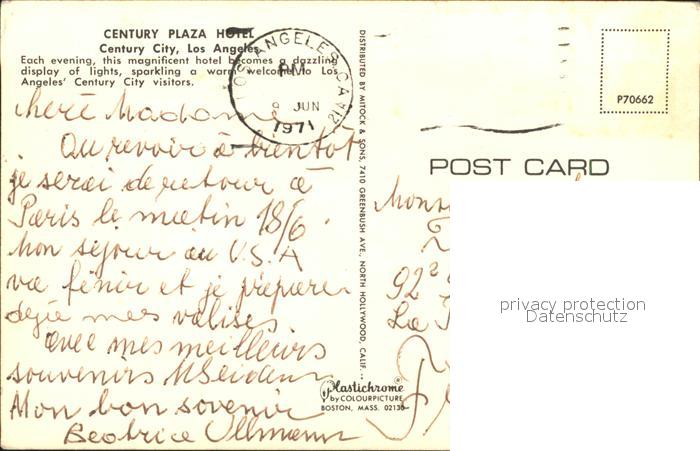 CENTURY PLAZA HOTEL
Century City, Los Angeles
Each evening, this magnificent hotel becomes a dazzling
display of lights, sparkling a warm welcome to Los
Angeles' Century City visitors.
LOS ANGELES, CA
PM
9 JUN
1971
chère Madame
Au revoir à bientôt
je serai de retour à
Paris le matin 18/6.
Mon séjour au U.S.A
va fénir et je prépare
dejà mes valises.
avec mes meilleurs
souvenirs
Mon bon sovenir
Beatrice Ullmann
DISTRIBUTED BY MITOCK & SONS, 7410 GREENBUSH AVE., NORTH HOLLYWOOD, CALIF.
Plastichrome®
by COLOURPICTURE
BOSTON, MASS. 02130
P70662
POST CARD
Mons
92²
La
privacy protection
Datenschutz